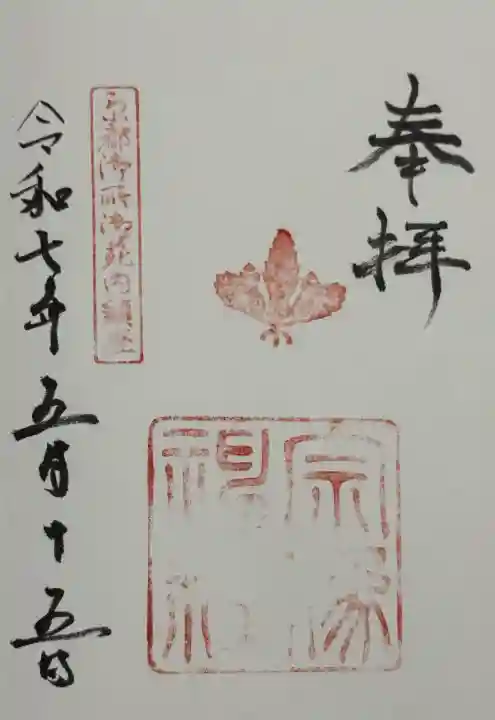 奉拝
宗像
神社
京都御所御苑内鎮座
令和七年五月十五日